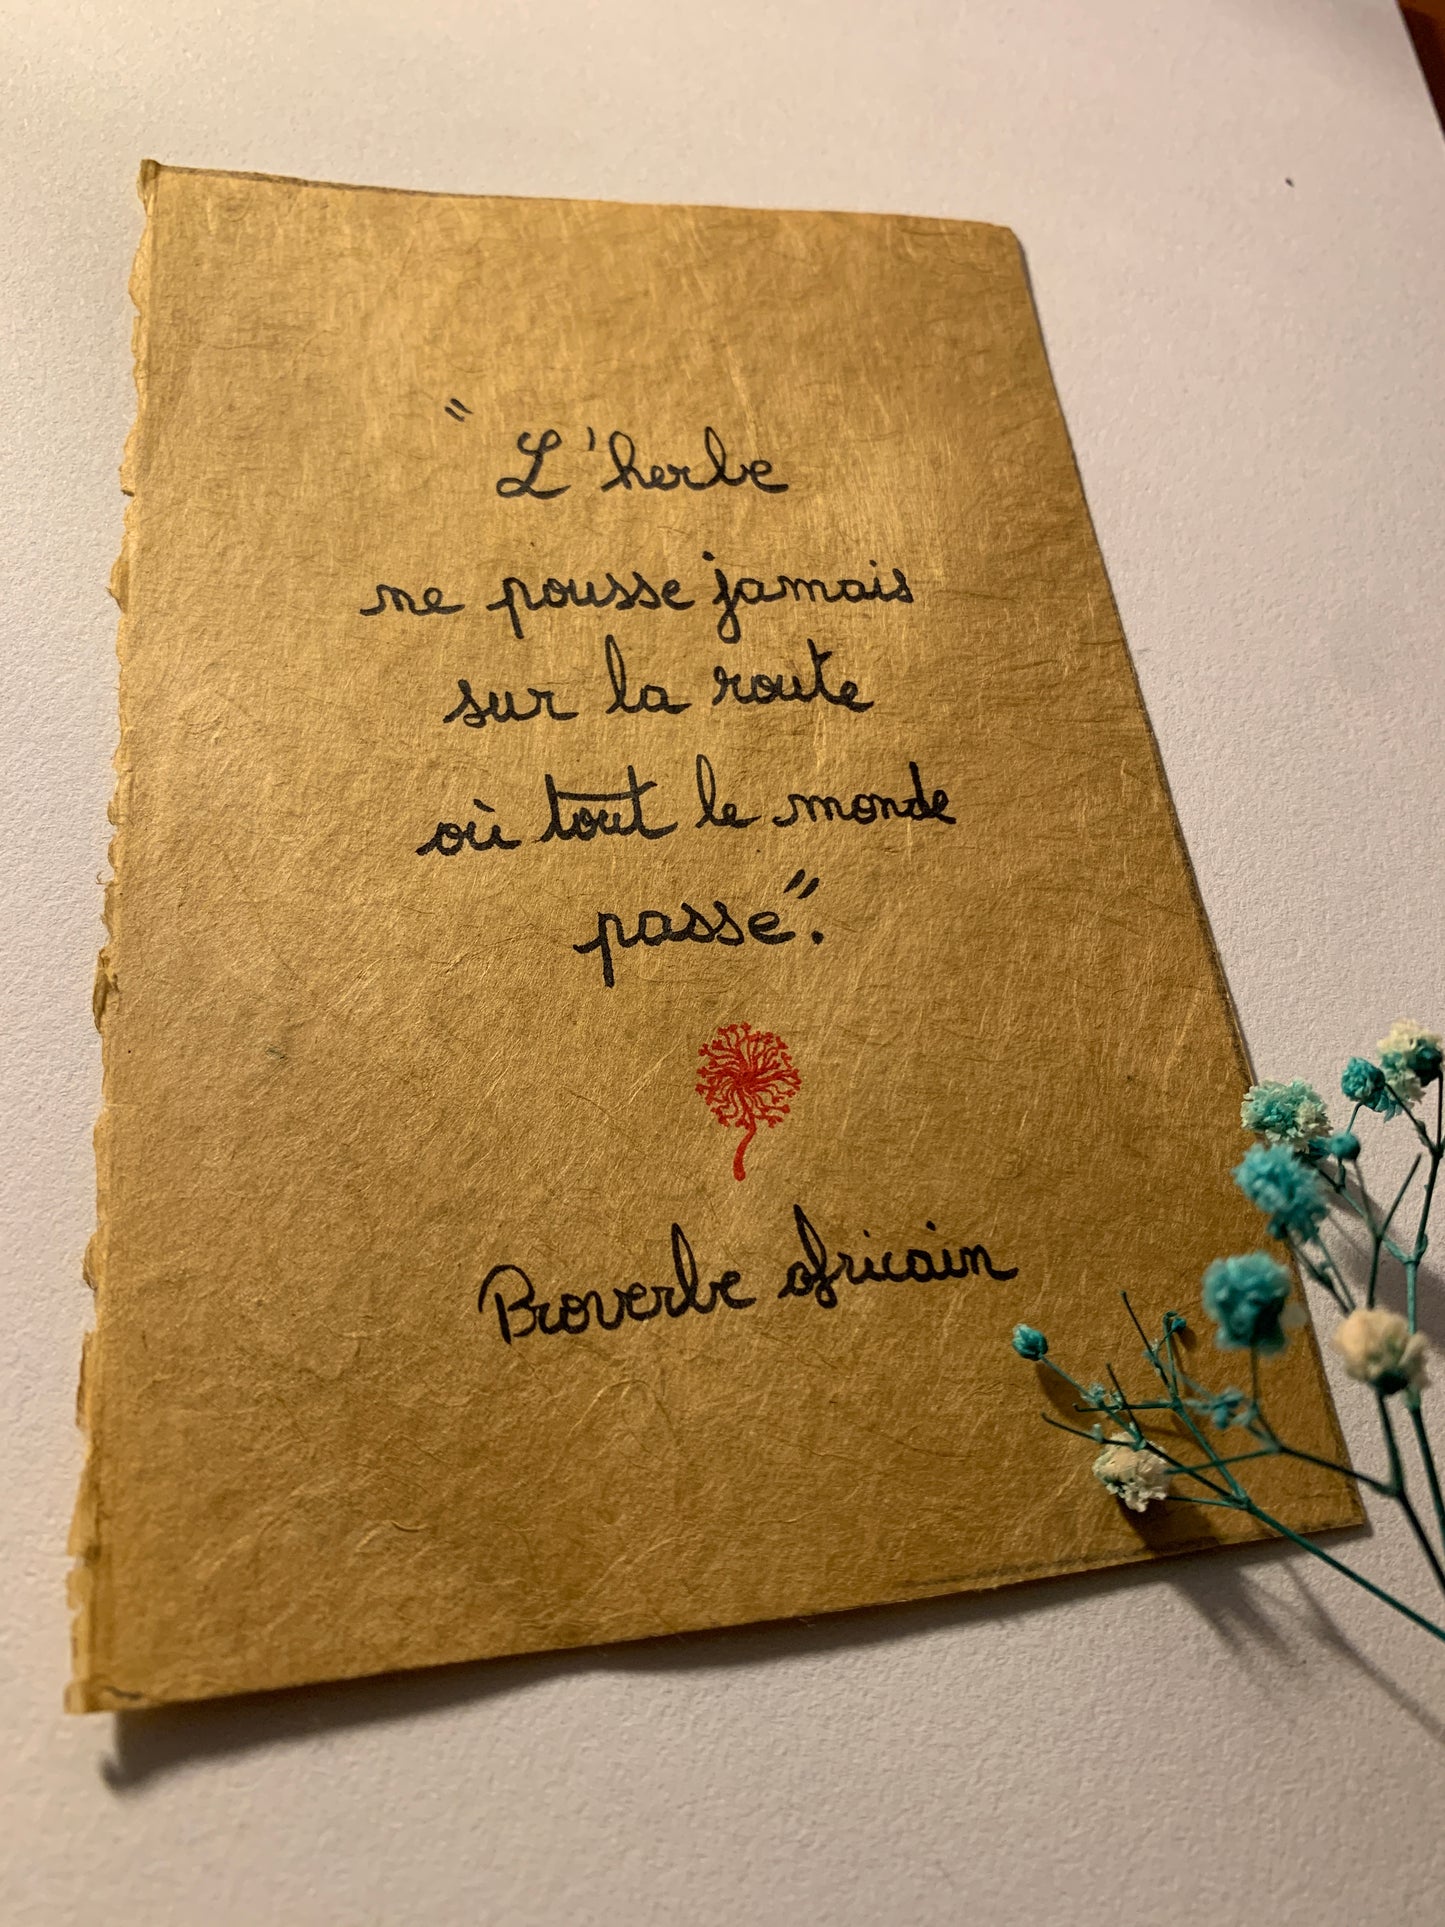 "L'herbe
ne pousse jamais
sur la route
où tout le monde
passe".
Proverbe africain